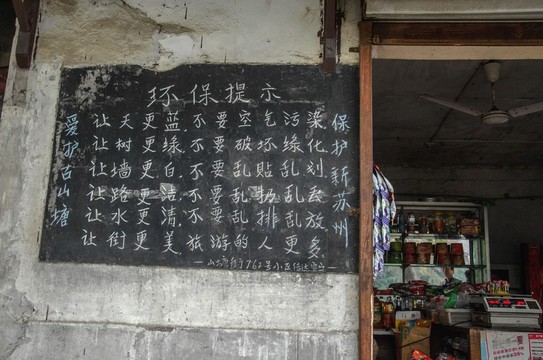 环保提示
爱护古山塘
让天更蓝.不要空气污染
让树更绿.不要破坏绿化
让墙更白.不要乱贴乱划
让路更洁.不要乱扔乱丢
让水更清.不要乱排乱放
让街更美.旅游的人更多.
保护新苏州
762号小店